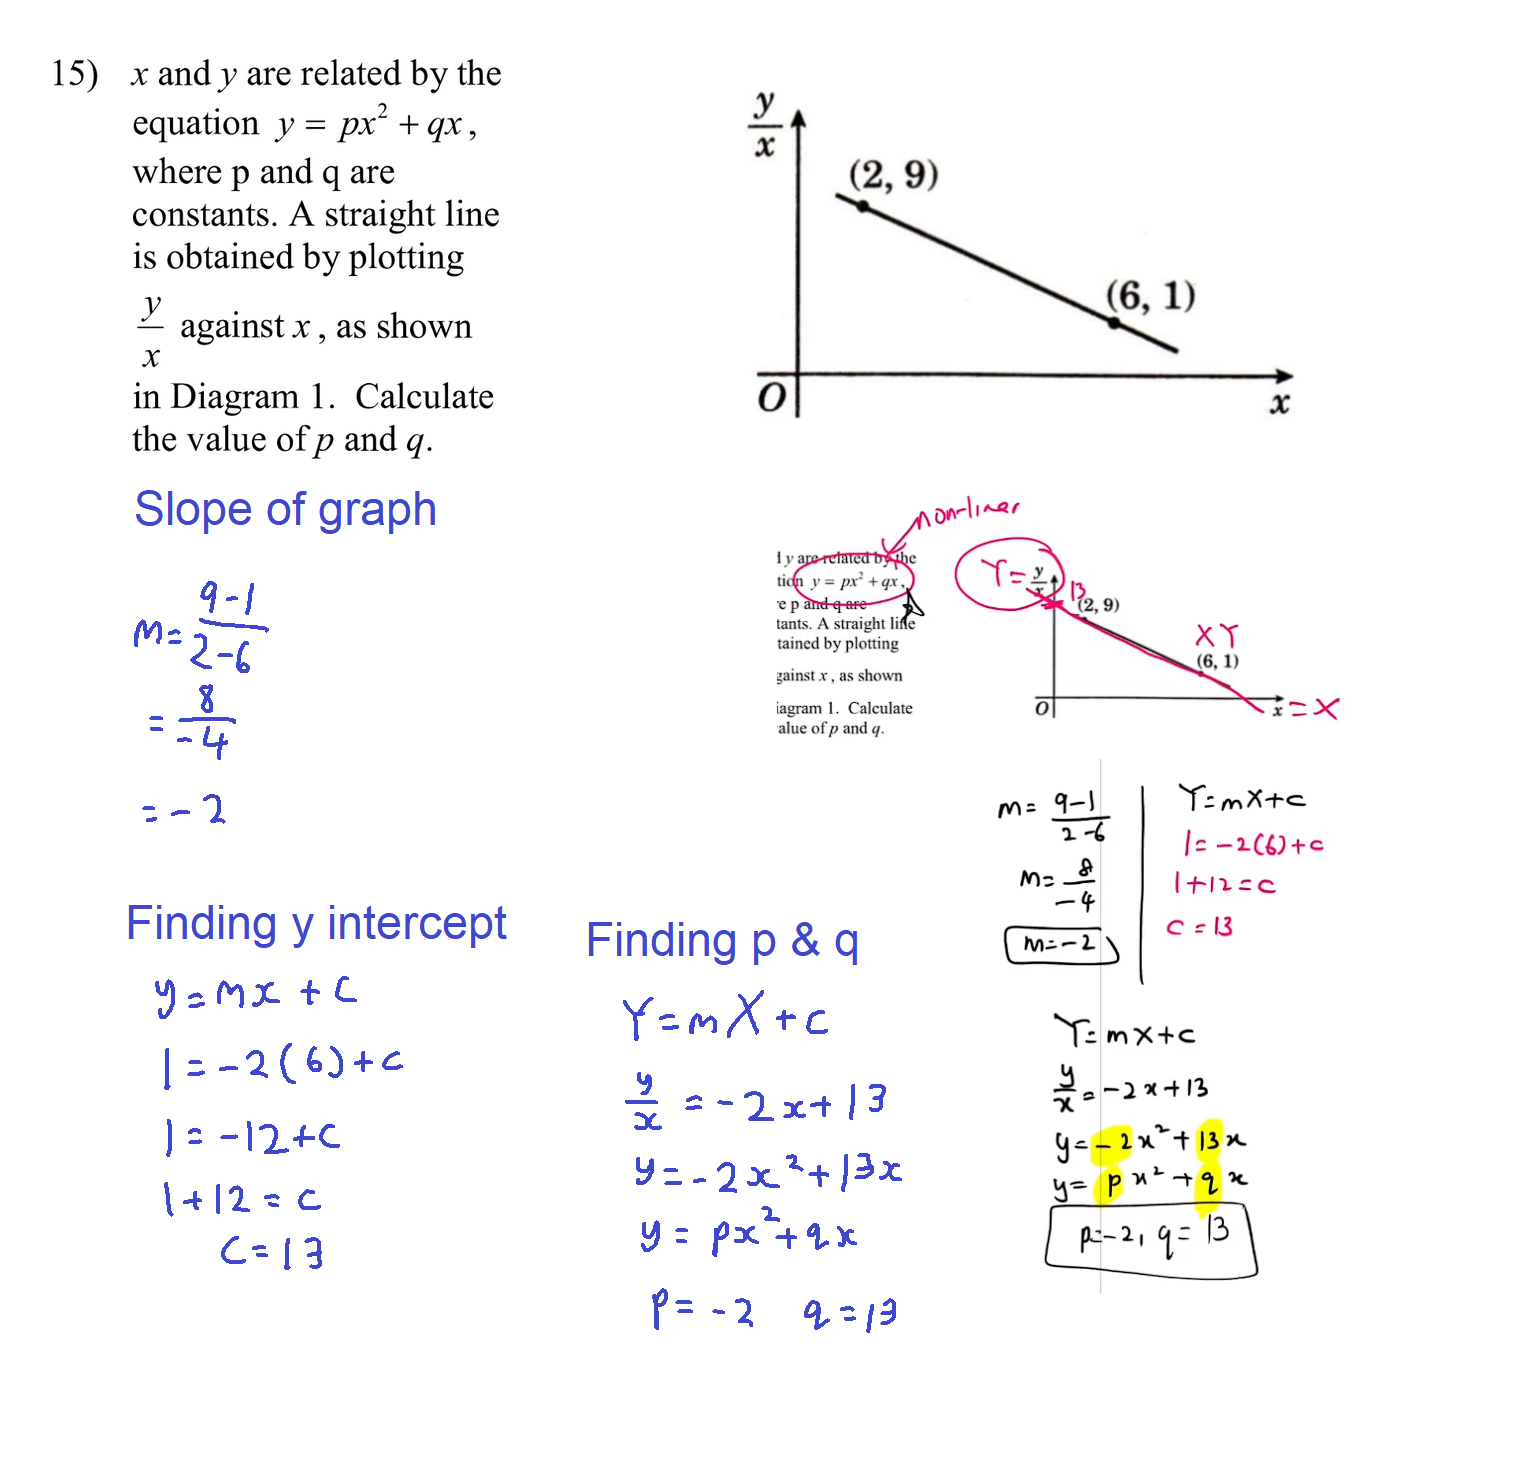 15) x and y are related by the
equation y = px² + qx,
where p and q are
constants. A straight line
is obtained by plotting
y/x against x, as shown
in Diagram 1. Calculate
the value of p and q.
y/x
(2, 9)
(6, 1)
O
x
Slope of graph
m = 9-1/2-6
= 8/-4
= -2
Finding y intercept
y = mx + c
1 = -2(6)+c
1 = -12+c
1+12 = c
c = 13
Finding p & q
Y = mX + c
y/x = -2x + 13
y = -2x² + 13x
y = px² + qx
p = -2 q = 13
non-liner
y are related by the
y = px² + qx,
p and q are
tants. A straight line
tained by plotting
gainst x, as shown
iagram 1. Calculate
alue of p and q.
Y = y/x
13
(2, 9)
X Y
(6, 1)
O
x = X
m = 9-1/2-6
m = 8/-4
m = -2
Y = mX + c
1 = -2(6)+c
1+12 = c
c = 13
Y = mX + c
y/x = -2x + 13
y = -2x² + 13x
y = px² + qx
p = -2, q = 13